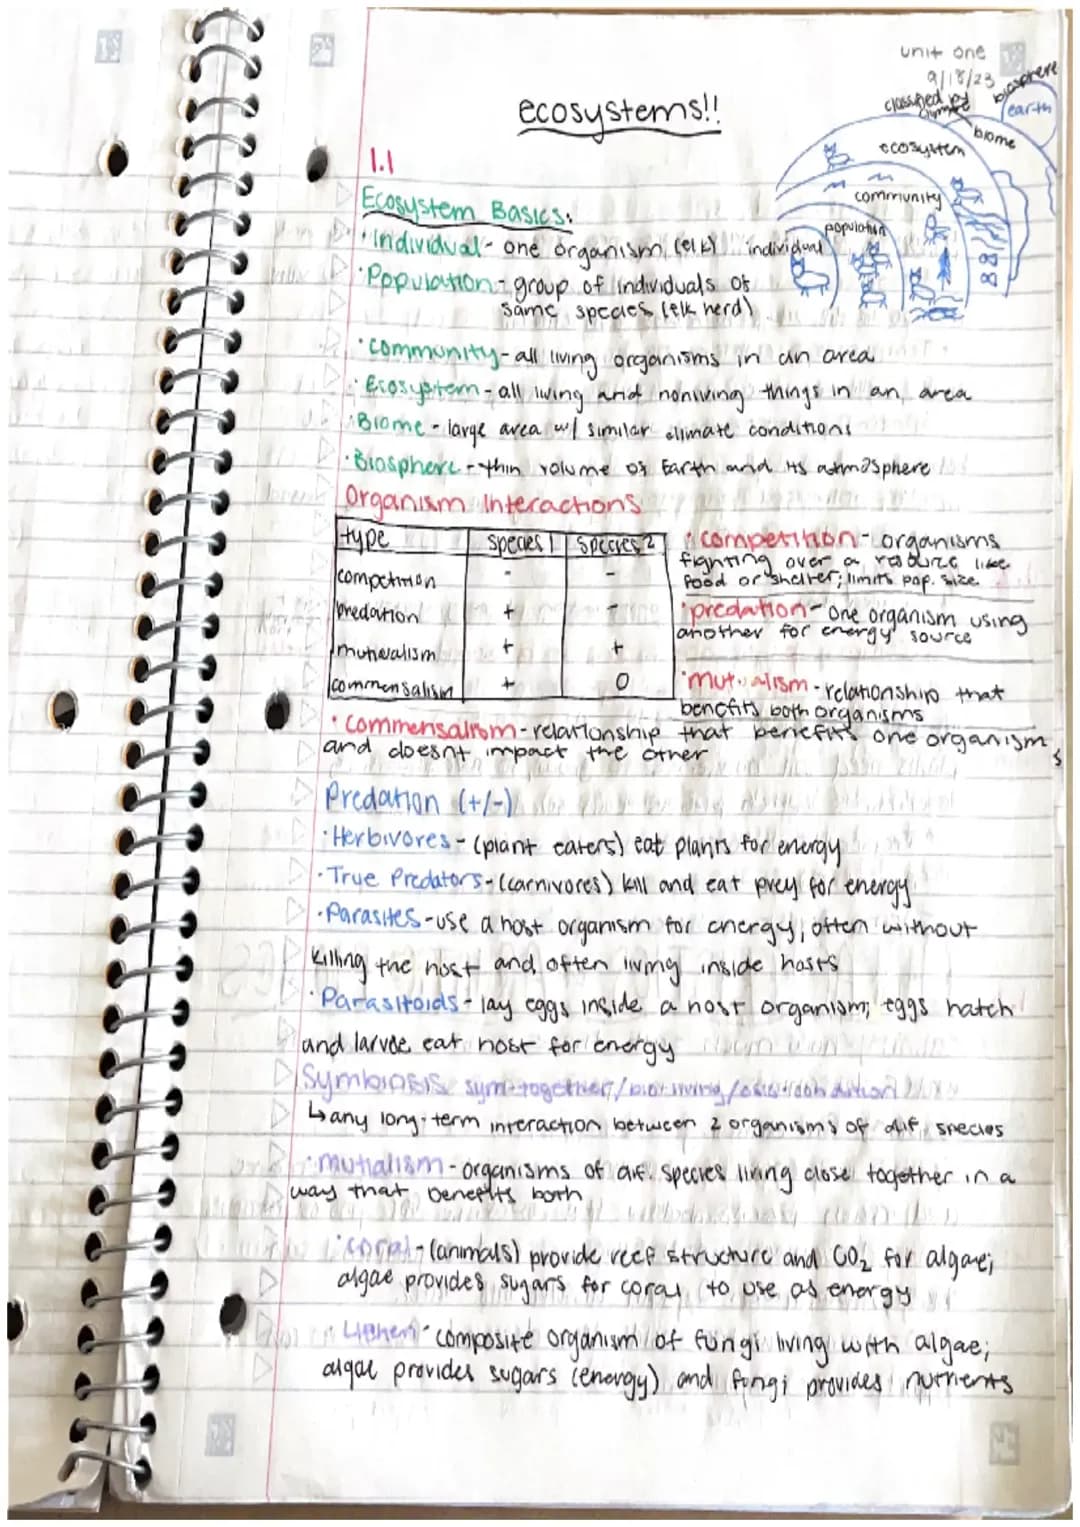 unit one
9/18/23
ecosystems!!
classified by climate
biosphere
earth
biome
ecosystem
community
population
individual
1.1
Ecosystem Basics:
· Individual - one organism (elk)
· Population - group of individuals of
same species (elk herd)
· community - all living organisms in an area
· Ecosystem - all living and nonliving things in an area
· Biome - large area w/ similar climate conditions
· Biosphere - thin volume of Earth and its atmosphere
Organism Interactions
type species 1 species 2
competition - -
predation + -
mutualism + +
commensalism + 0
· competition - organisms
fighting over a resource like
food or shelter; limits pop. size
· predation - one organism using
another for energy source
· mutualism - relationship that
benefits both organisms
· commensalism - relationship that benefits one organism
and doesnt impact the other
Predation (+/-)
· Herbivores - (plant eaters) eat plants for energy
· True Predators - (carnivores) kill and eat prey for energy
· Parasites - use a host organism for energy, often without
killing the host and often living inside hosts
· Parasitoids - lay eggs inside a host organism; eggs hatch
and larvae eat host for energy
Symbiosis sym-together/bio-living/osis-condition
↳ any long-term interaction between 2 organisms of dif. species
· mutialism - organisms of dif. species living close together in a
way that benefits both
· coral - (animals) provide reef structure and CO₂ for algae;
algae provides sugars for coral to use as energy
· Lichen - composite organism of fungi living with algae;
algae provides sugars (energy) and fungi provides nutrients